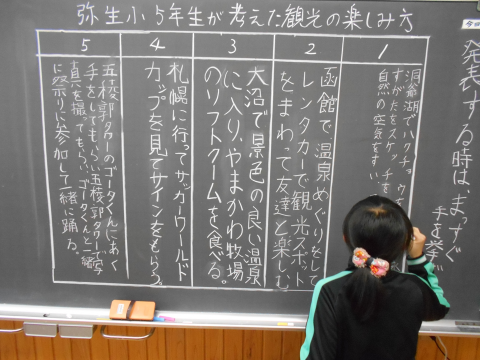 弥生小5年生が考えた観光の楽しみ方
今日
発表する時は、まっすぐ
手を挙げ
1
洞爺湖でハクチョウ
すがたをスケッチを
自然の空気をすい
2
函館で温泉めぐりをして
レンタカーで観光スポット
をまわって友達と楽しむ
3
大沼で景色の良い温泉
に入り、やまかわ牧場
のソフトクームを食べる。
4
札幌に行ってサッカーワールド
カップを見てサインをもらう。
5
五稜郭タワーのゴータくんにあく
手をしてもらい五稜郭タワーで写
真を撮ってもらい、ゴータくんと一緒
に祭りに参加して一緒に踊る。